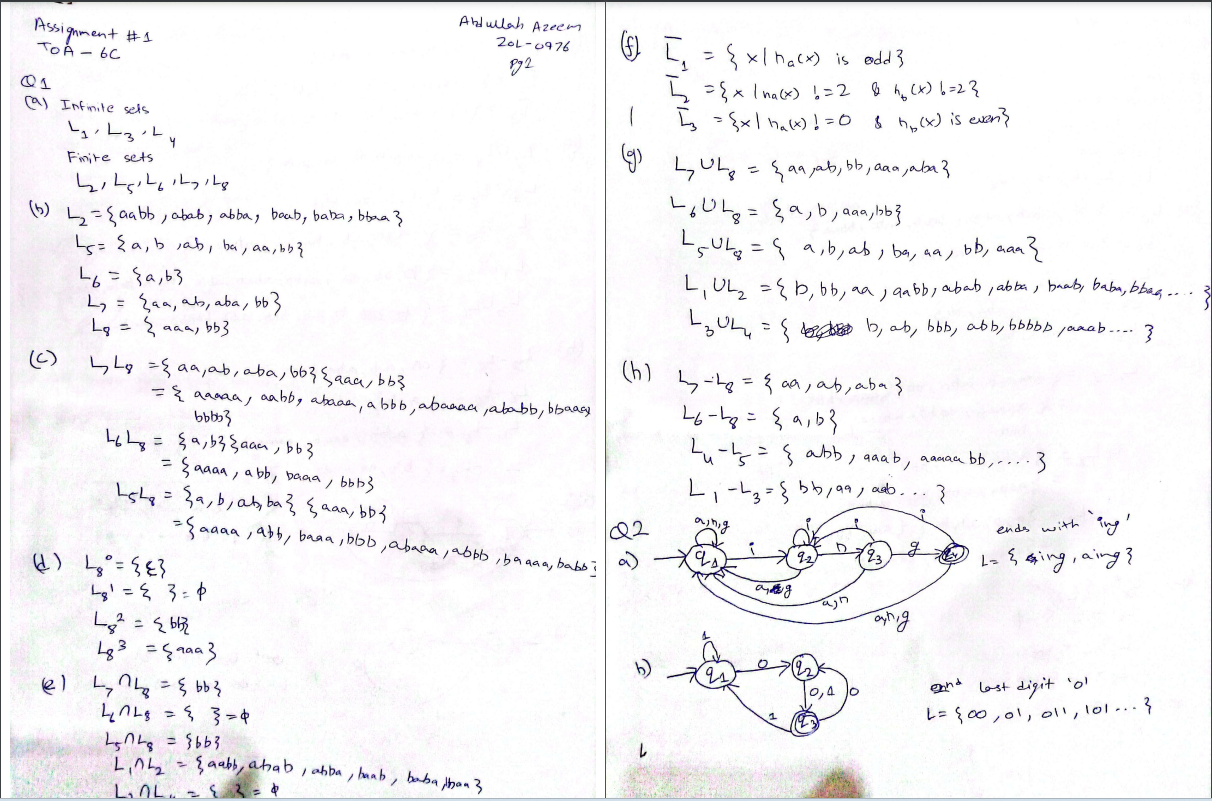 Assignment #1
TOA - 6C
Abdullah Azeem
20L-0976
Pg2
Q1
(a) Infinite sets
L₁, L₃, L₄
Finite sets
L₂, L₅, L₆, L₇, L₈
(b) L₂ = {aabb, abab, abba, baab, baba, bbaa}
L₅ = {a, b, ab, ba, aa, bb}
L₆ = {a, b}
L₇ = {aa, ab, aba, bb}
L₈ = {aaa, bb}
(c) L₇L₈ = {aa, ab, aba, bb}{aaa, bb}
= {aaaaa, aabb, abaaa, abbb, abaaaa, ababb, bbaaa,
bbbb}
L₆L₈ = {a, b}{aaa, bb}
= {aaaa, abb, baaa, bbb}
L₅L₈ = {a, b, ab, ba} {aaa, bb}
= {aaaa, abb, baaa, bbb, abaaa, abbb, baaaa, babb}
(d) L₈⁰ = {ε}
L₈¹ = { } = φ
L₈² = {bb}
L₈³ = {aaa}
(e) L₇∩L₈ = {bb}
L₆∩L₈ = { } = φ
L₅∩L₈ = {bb}
L₁∩L₂ = {aabb, abab, abba, baab, baba, bbaa}
= { } = φ
(f) L̄₁ = {x | nₐ(x) is odd}
L̄₂ = {x | nₐ(x) != 2 & n_b(x) != 2}
L̄₃ = {x | nₐ(x) != 0 & n_b(x) is even}
(g) L₇∪L₈ = {aa, ab, bb, aaa, aba}
L₆∪L₈ = {a, b, aaa, bb}
L₅∪L₈ = { a, b, ab, ba, aa, bb, aaa}
L₁∪L₂ = {b, bb, aa, aabb, abab, abba, baab, baba, bbaa, .... }
L₃∪L₄ = { b, ab, bbb, abb, bbbbb, aaab .... }
(h) L₇-L₈ = {aa, ab, aba}
L₆-L₈ = {a, b}
L₄-L₅ = { abb, aaab, aaaaabb, ..... }
L₁-L₃ = {bb, aa, aab... }
Q2
a) a,n,g
i
i
i
i
q₁
q₂
n
q₃
g
q₄
a,n
a,n,g
ends with 'ing'
L = { ing, aing}
b) 1
q₁
0
q₂
0,1
0
1
q₃
last digit '0'
L = {00, 01, 011, 101 ... }